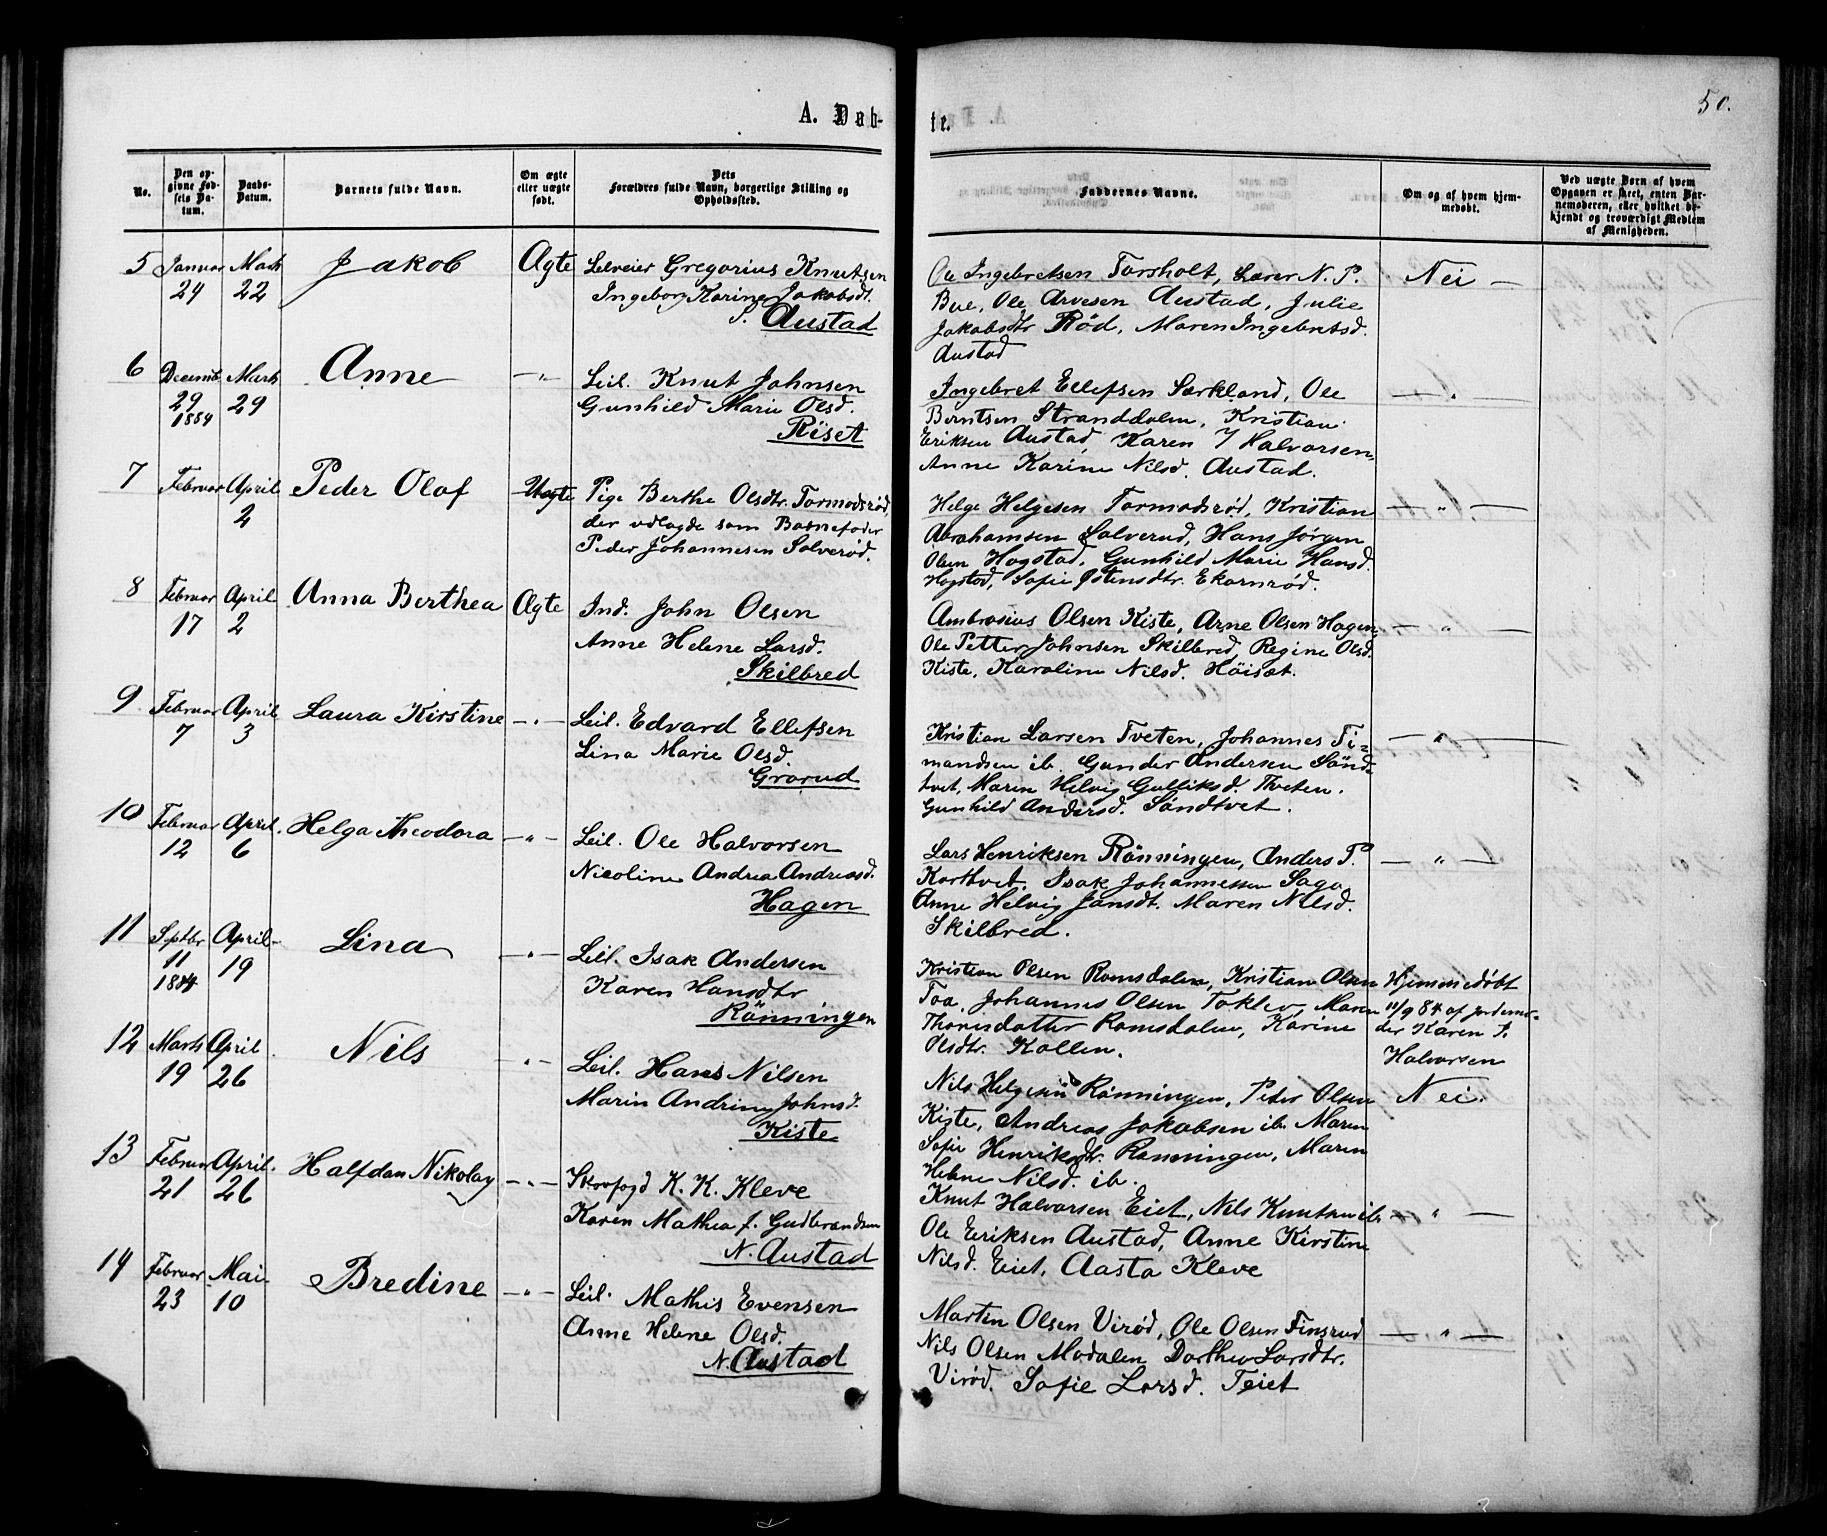 50.
A. Døb-
te.
No.
Den op-
givne Fød-
sels Da-
tum.
Daabs-
Datum.
Barnets fulde Navn.
Om ægte
eller uægte
født.
Dets
Forældres fulde Navn, borgerlige Stilling og
Opholdssted.
Faddernes Navne.
Om og af hvem hjem-
medøbt.
Ved uægte Børn af hvem
Opgaven er skeet, enten Bar-
nemoderen, eller hvilket be-
kjendt og troværdigt Medlem
af Menigheden.
5 Januar 24 Marts 22 Jakob Ægte
Gregorius Knutsen
Ingeborg Karine Jakobsdt.
S. Austad
Ole Ingebretsen Torsholt, Lærer N. P.
Bue, Ole Arvesen Austad, Julie
Jakobsdtr Rød, Maren Ingebretsd.
Austad
Nei —
6 Decemb 29 1884 Marts 29 Anne — " —
Leil. Knut Johnsen
Gunhild Marie Olsd.
Röset
Ingebret Ellefsen Sørkland, Ole
Berntsen Stranddalen, Kristian
Eriksen Austad, Karen J Halvorsen,
Anne Karine Nilsd. Austad.
— " —
7 Februar April 2 Peder Olaf Uægte
Pige Berthe Olsdtr. Tormodsrød,
der udlagde som Barnefader
Peder Johannesen Solverød.
Helge Helgesen Tormodsrød, Kristian
Abrahamsen Solverud, Hans Jørgen
Olsen Hogstad, Gunhild Marie Hansd.
Hogstad, Sofie Østensdtr. Ekornrød.
— " —
8 Februar 17 April 2 Anna Berthea Ægte
Ind. John Olsen
Anne Helene Larsd.
Skilbred
Ambrosius Olsen Kiste, Arne Olsen Hagen,
Ole Petter Johnsen Skilbred, Regine Olsd.
Kiste, Karoline Nilsd. Höisæt.
— " —
9 Februar 7 April 3 Laura Kirstine — " —
Leil. Edvard Ellefsen
Lina Marie Olsd.
Grorud
Kristian Larsen Tveten, Johannes Ti-
mandsen ib. Gunder Andersen Sönd-
tvet, Maren Helvig Gulliksd. Tveten.
Gunhild Andersd. Söndtvet.
— " —
10 Februar 12 April 6 Helga Theodora — " —
Leil. Ole Halvorsen
Nicoline Andrea Andreasd.
Hagen
Lars Henriksen Rönningen, Anders P.
Korttvet. Isak Johannessen Saga
Anne Helvig Jansdt. Maren Nilsd.
Skilbred.
— " —
11 Septbr 11 1884 April 19 Lina — " —
Leil. Isak Andersen
Karen Hansdtr
Rönningen
Kristian Olsen Romsdalen, Kristian Olsen
Toa, Johannes Olsen Toklev, Maren
Thoresdatter Romsdalen, Karine
Olsdtr. Kollen.
Hjemmedøbt
11/9 84 af Jordemo-
der Karen P.
Halvorsen
12 Marts 19 April 26 Nils — " —
Leil. Hans Nilsen
Maren Andrine Johnsd.
Kiste
Nils Helgesen Rönningen, Peder Olsen
Kiste, Andreas Jakobsen ib. Maren
Sofie Henriksdtr. Rönningen, Maren
Helene Nilsd. ib.
Nei.
13 Februar 21 April 26 Halfdan Nikolay — " —
Skovfogd K. K. Kleve
Karen Mathea f. Gudbrandsen
N. Austad
Knut Halvorsen Eiet, Nils Knutsen ib.
Ole Eriksen Austad, Anne Kirstine
Nilsd. Eiet, Aasta Kleve
— " —
14 Februar 23 Mai 10 Bredine — " —
Leil. Mathis Evensen
Anne Helene Olsd.
N. Austad
Martin Olsen Virød, Ole Olsen Finsrud
Nils Olsen Modalen Dorthea Larsdtr.
Virød. Sofie Larsd. Teiet
— " —